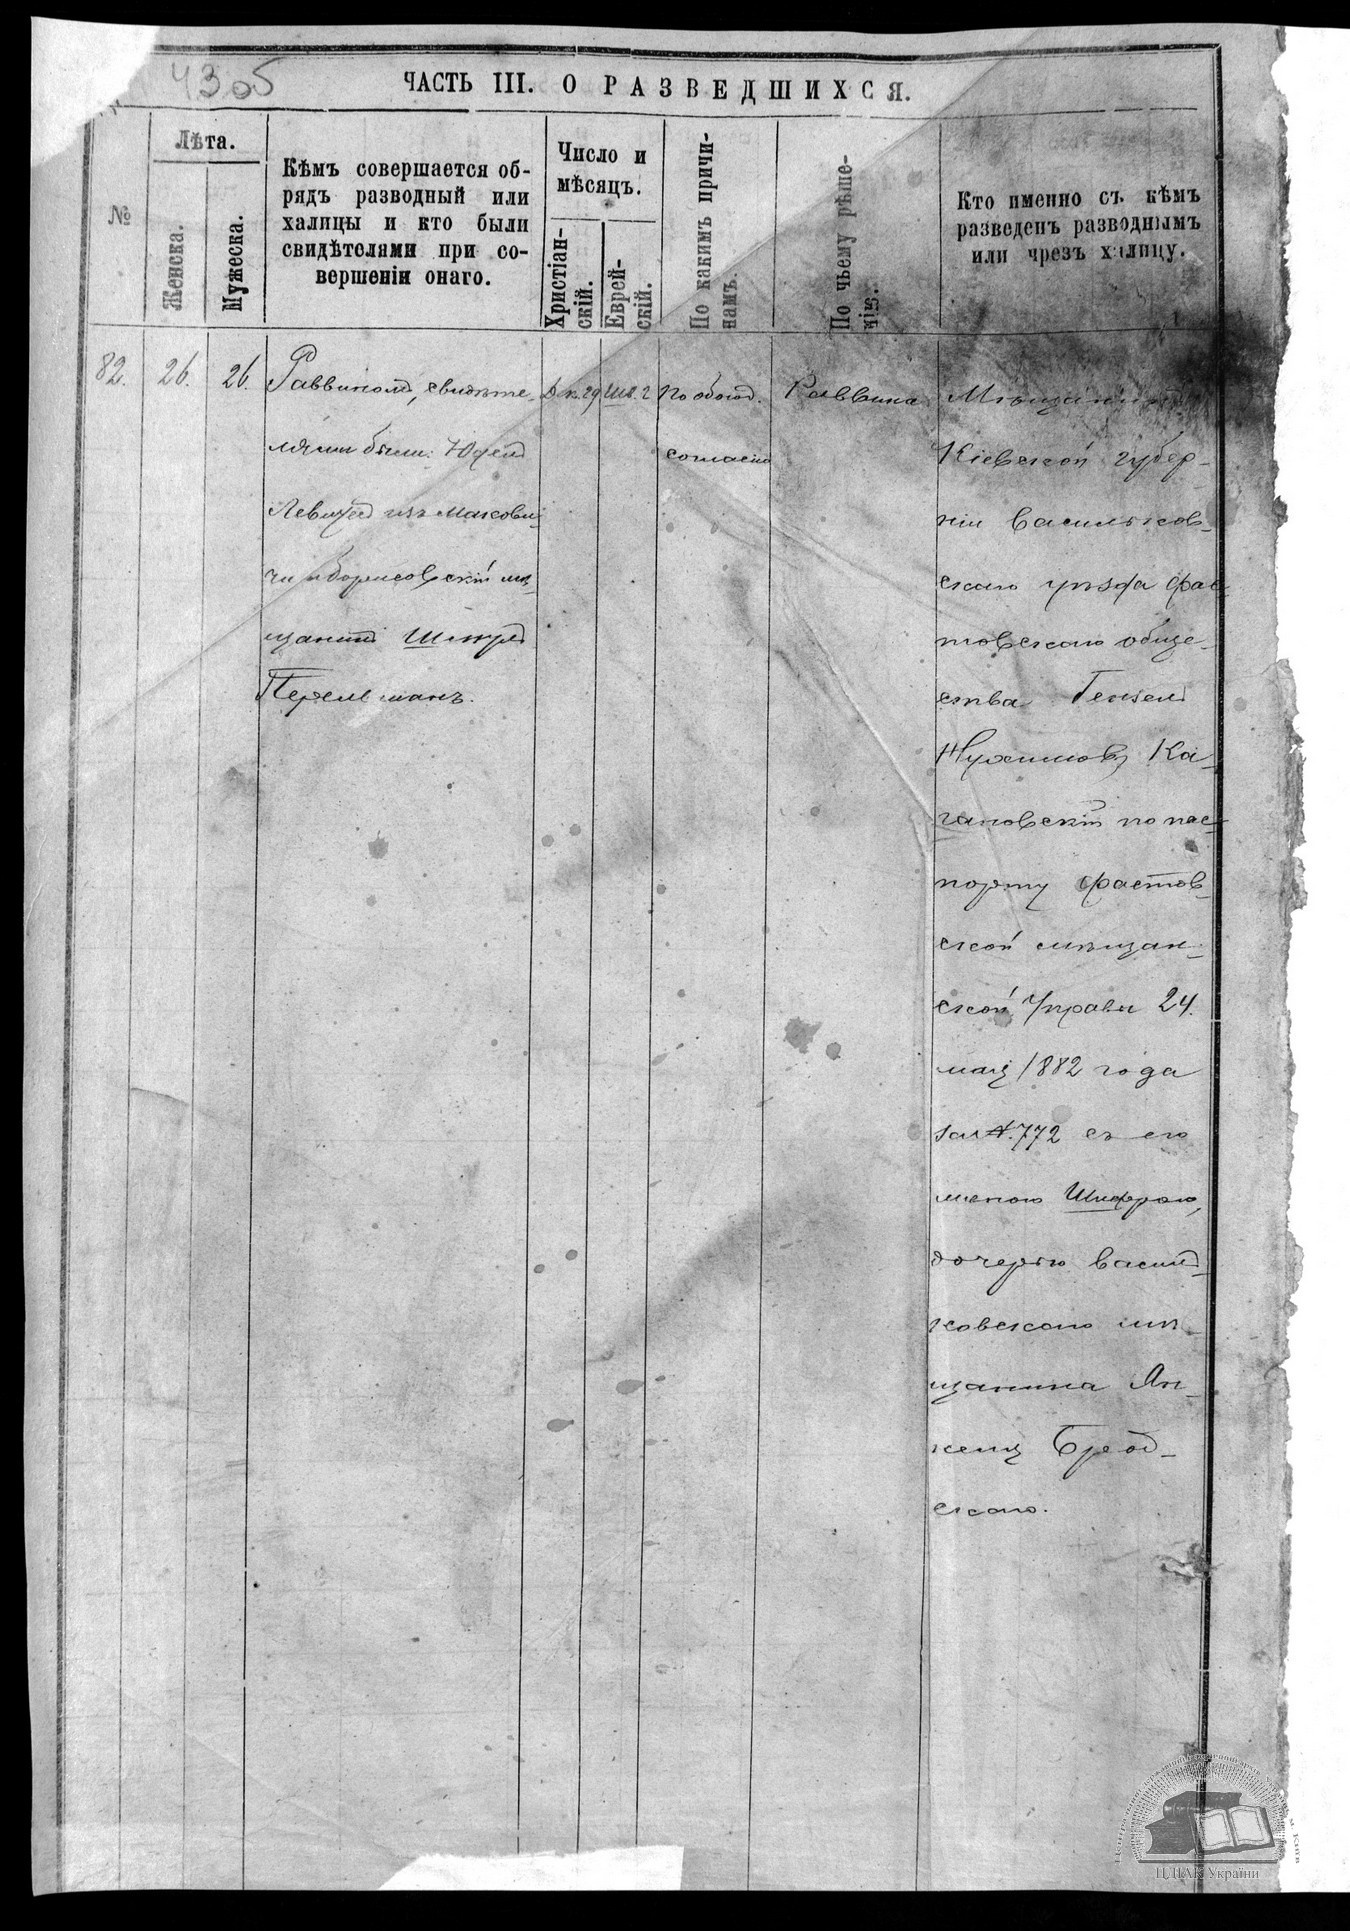 43 об
ЧАСТЬ III. О РАЗВЕДШИХСЯ.
№
Лѣта.
Женска.
Мужеска.
Кѣмъ совершается об-
рядъ разводный или
халицы и кто были
свидѣтелями при со-
вершеніи онаго.
Число и
мѣсяцъ.
Христіан-
скій.
Еврей-
скій.
По какимъ причи-
намъ.
По чьему рѣше-
нію.
Кто именно съ кѣмъ
разведенъ разводнымъ
или чрезъ халицу.
82.
26.
26.
Раввиномъ, свидѣте-
лями были: Юдель
изъ
чи и Борисовскій мѣ-
щанинъ
Перельманъ.
Дк. 29
Шв. 2
по обоюд.
согласію
Раввина
Мѣщанинъ
Кіевской губер-
ніи Васильков-
скаго уѣзда Фас-
товскаго обще-
ства Гензель
Нухимовъ Ка-
гановскій по пас-
порту Фастов-
ской мѣщан-
ской Управы 24
1882 года
за №. 772 съ его
женою Шифрою,
дочерью Василь-
ковскаго мѣ-
щанина Ян-
келя Брод-
скаго.
ЦДІАК України